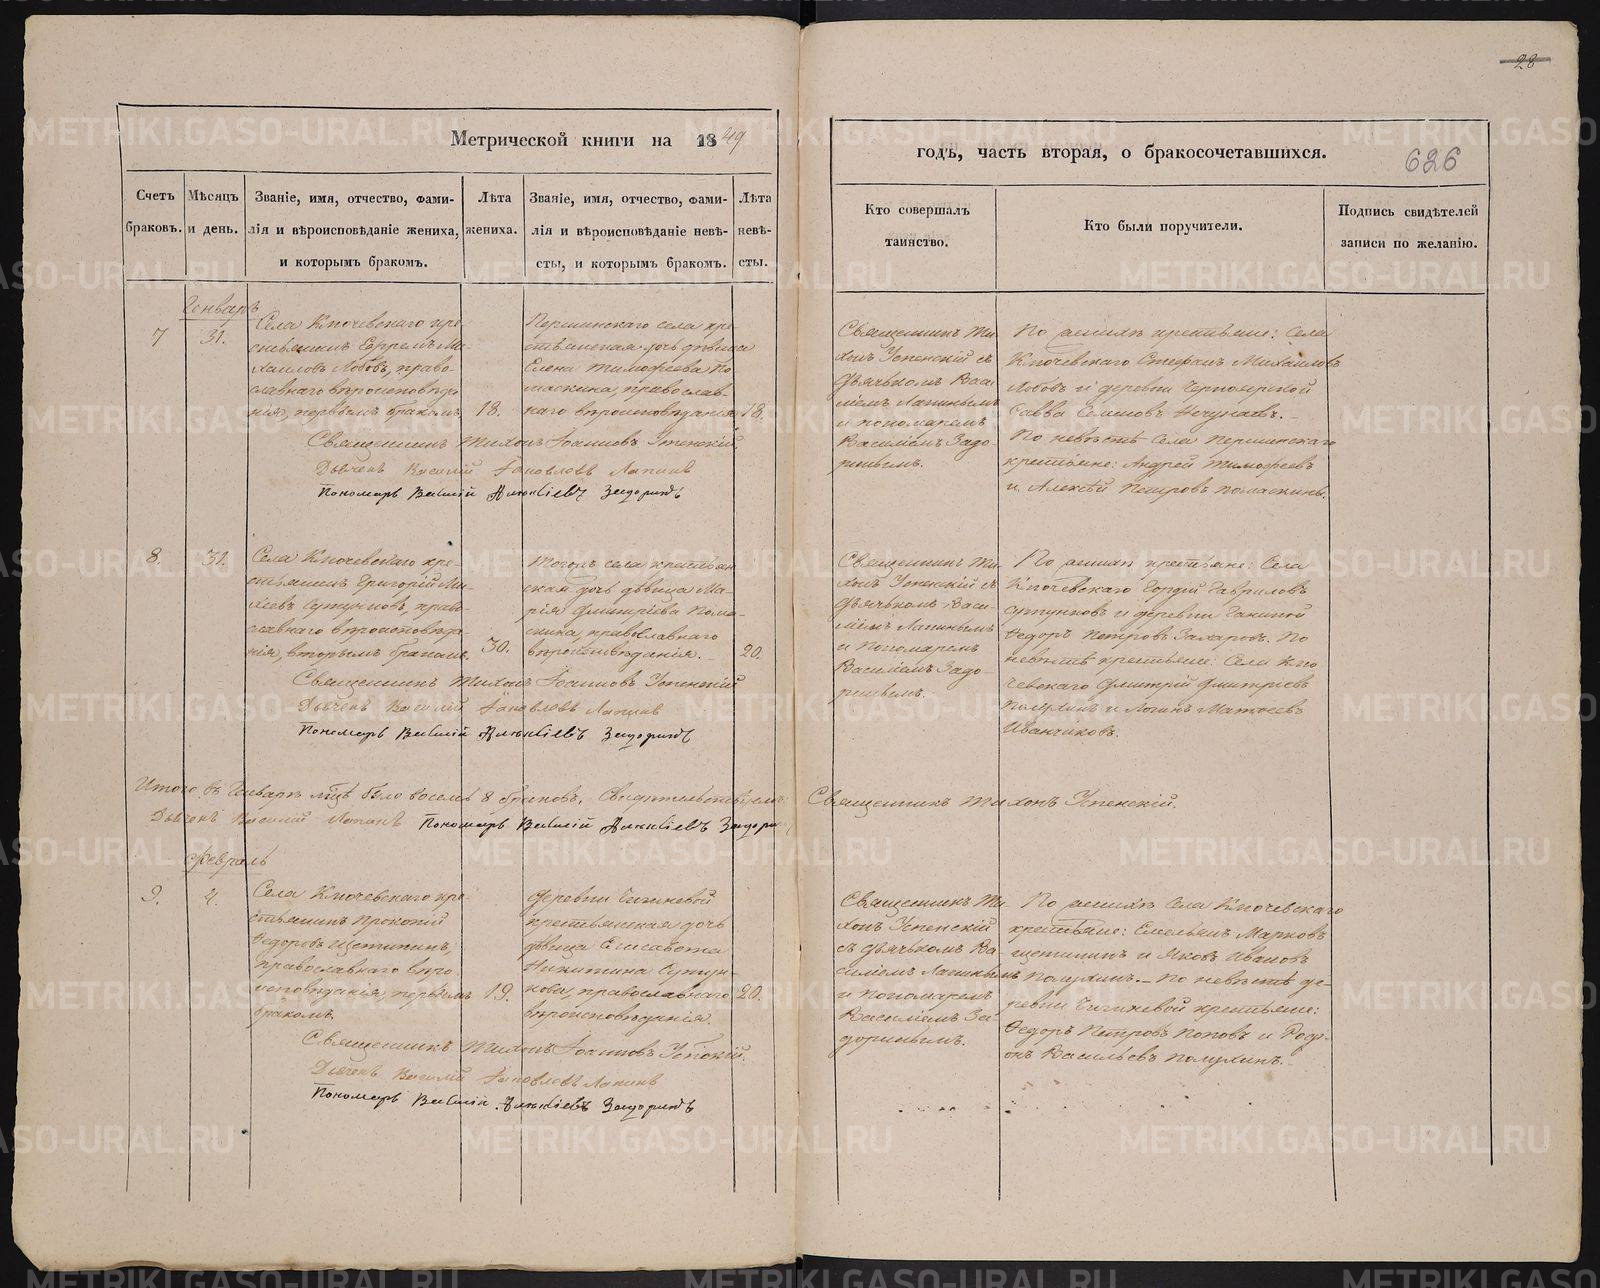 28
Метрической книги на 1849
годъ, часть вторая, о бракосочетавшихся.
626
Счетъ браковъ.
Мѣсяцъ и день.
Званіе, имя, отчество, фами-
лія и вѣроисповѣданіе жениха,
и которымъ бракомъ.
Лѣта жениха.
Званіе, имя, отчество, фами-
лія и вѣроисповѣданіе невѣ-
сты, и которымъ бракомъ.
Лѣта невѣ-
сты.
Кто совершалъ
таинство.
Кто были поручители.
Подпись свидѣтелей
записи по желанію.
Генварь
7
31.
Села Ключевскаго кре-
стьянинъ Ефремъ Ми-
хаиловъ Лобовъ, право-
славнаго вѣроисповѣда-
нія, первымъ бракомъ
18.
Першинскаго села кре-
стьянская дочь дѣвица
Елена Тимофеева По-
маскина, православ-
наго вѣроисповѣданія
18.
Священникъ Ти-
хонъ Успенскій съ
Дьячькомъ Васи-
ліемъ Лапинымъ
и пономаремъ
Василіемъ Задо-
ринымъ.
По женихѣ крестьяне: Села
Ключевскаго Стефанъ Михаиловъ
Лобовъ и деревни
Савва Семеновъ
По невѣстѣ Села Першинскаго
крестьяне: Андрей Тимофеевъ
и Алексѣй Петровъ Помаскины.
Священникъ Тихонъ Іоанновъ Успенскій
Дьячекъ Василій Іаковлевъ Лапинъ
Пономарь Василій Задоринъ
8.
31.
Села Ключевскаго кре-
стьянинъ Григорій Ми-
хѣевъ Сутунковъ, право-
славнаго вѣроисповѣда-
нія, вторымъ бракомъ.
30.
Тогожъ села крестьян-
ская дочь дѣвица Ма-
рія Дмитріева Пома-
скина, православнаго
вѣроисповѣданія.
20.
Священникъ Ти-
хонъ Успенскій съ
Дьячькомъ Васи-
ліемъ Лапинымъ
и Пономаремъ
Василіемъ Задо-
ринымъ.
По женихѣ крестьяне: Села
Ключевскаго Гордій Гавриловъ
Сутунковъ и деревни
Ѳедоръ Петровъ Захаровъ. По
невѣстѣ крестьяне: Села Клю-
чевскаго Дмитрій Дмитріевъ
Полухинъ и Логинъ Матѳеевъ
Иванчиковъ.
Священникъ Тихонъ Іоанновъ Успенскій
Дьячекъ Василій Іаковлевъ Лапинъ
Пономарь Василій Задоринъ
Итого въ Генварѣ мцѣ было восемь 8 браковъ. Свидѣтельствуемъ: Священникъ Тихонъ Успенскій.
Дьячекъ Василій Лапинъ Пономарь Василій Задори
Февраль
9.
4.
Села Ключевскаго кре-
стьянинъ Прокопій
Ѳедоровъ Щетининъ,
православнаго вѣро-
исповѣданія, первымъ
бракомъ.
19.
Деревни Чигиневой
крестьянская дочь
дѣвица Елисавета
Никитина Сутун-
кова, православнаго
вѣроисповѣданія.
20.
Священникъ Ти-
хонъ Успенскій
съ Дьячькомъ Ва-
силіемъ Лапинымъ
и Пономаремъ
Василіемъ За-
доринымъ.
По женихѣ Села Ключевскаго
крестьяне: Емельянъ Марковъ
Щетининъ и Яковъ Ивановъ
Полухинъ. - По невѣстѣ де-
ревни крестьяне:
Ѳедоръ Петровъ Поповъ и Роді-
онъ Васильевъ Полухинъ.
Священникъ Тихонъ Іоанновъ Успенскій.
Дьячекъ Василій Іаковлевъ Лапинъ
Пономарь Василій Задоринъ
METRIKI.GASO-URAL.RU